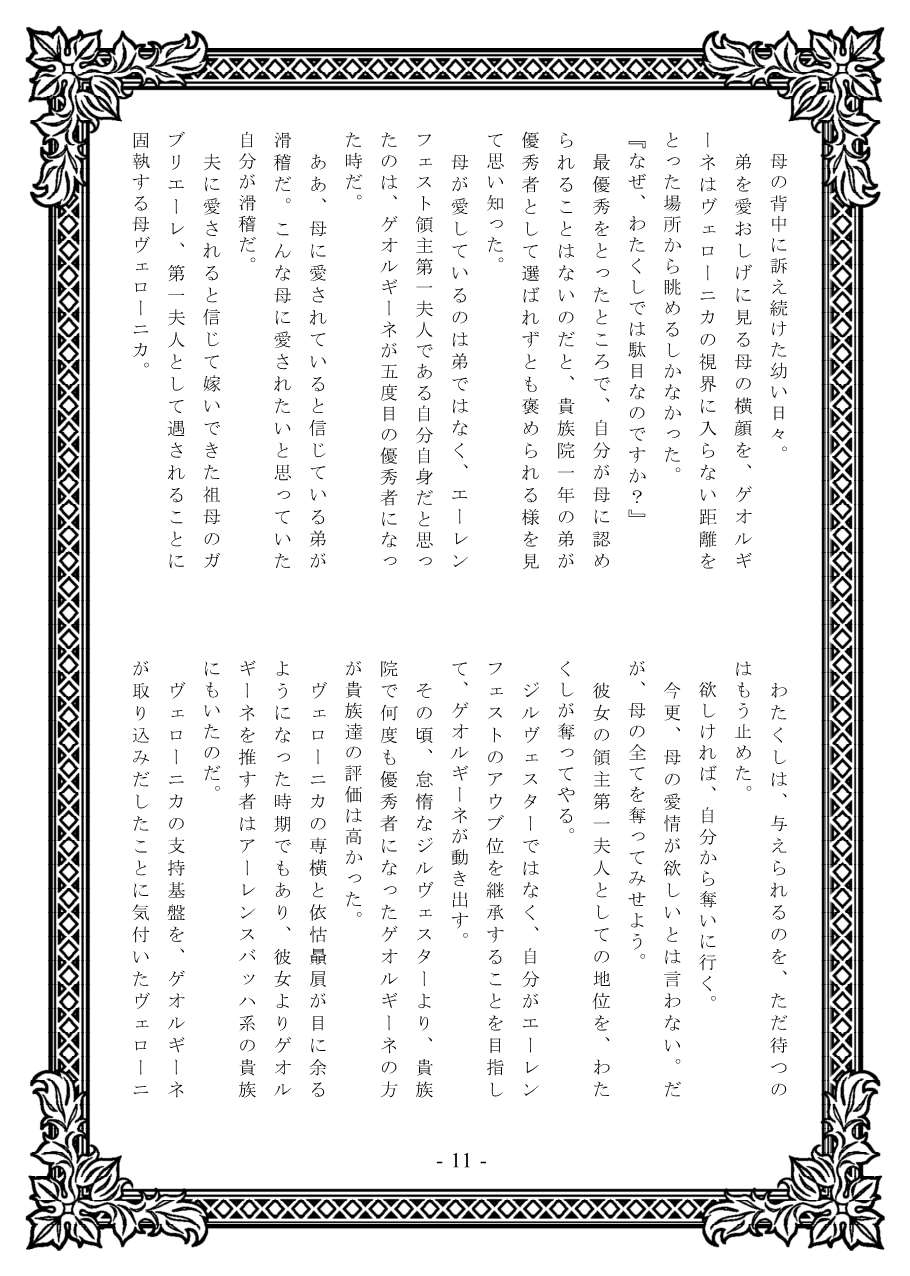 母の背中に訴え続けた幼い日々。
弟を愛おしげに見る母の横顔を、ゲオルギ
ーネはヴェローニカの視界に入らない距離を
とった場所から眺めるしかなかった。
『なぜ、わたくしでは駄目なのですか？』
最優秀をとったところで、自分が母に認め
られることはないのだと、貴族院一年の弟が
優秀者として選ばれずとも褒められる様を見
て思い知った。
母が愛しているのは弟ではなく、エーレン
フェスト領主第一夫人である自分自身だと思っ
たのは、ゲオルギーネが五度目の優秀者になっ
た時だ。
ああ、母に愛されていると信じている弟が
滑稽だ。こんな母に愛されたいと思っていた
自分が滑稽だ。
夫に愛されると信じて嫁いできた祖母のガ
ブリエーレ、第一夫人として遇されることに
固執する母ヴェローニカ。
わたくしは、与えられるのを、ただ待つの
はもう止めた。
欲しければ、自分から奪いに行く。
今更、母の愛情が欲しいとは言わない。だ
が、母の全てを奪ってみせよう。
彼女の領主第一夫人としての地位を、わた
くしが奪ってやる。
ジルヴェスターではなく、自分がエーレン
フェストのアウブ位を継承することを目指し
て、ゲオルギーネが動き出す。
その頃、怠惰なジルヴェスターより、貴族
院で何度も優秀者になったゲオルギーネの方
が貴族達の評価は高かった。
ヴェローニカの専横と依怙贔屓が目に余る
ようになった時期でもあり、彼女よりゲオル
ギーネを推す者はアーレンスバッハ系の貴族
にもいたのだ。
ヴェローニカの支持基盤を、ゲオルギーネ
が取り込みだしたことに気付いたヴェローニ
- 11 -